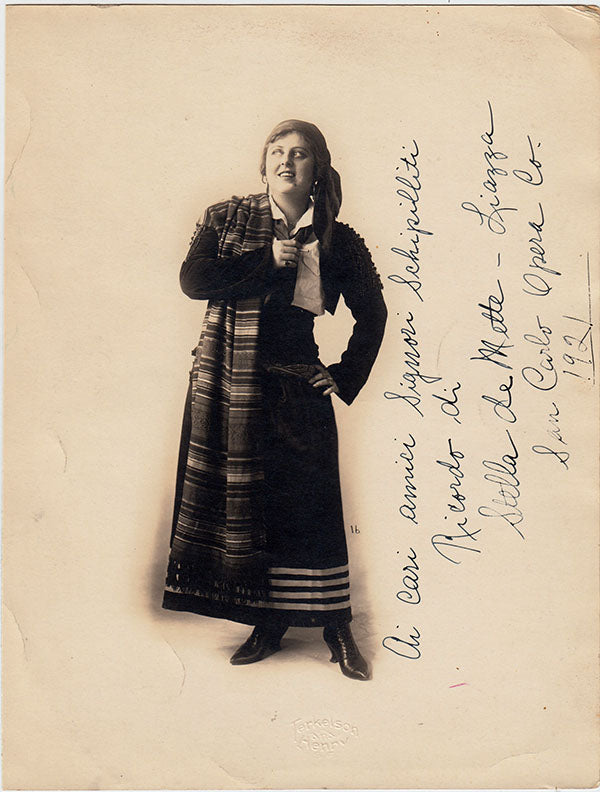 Ai cari amici Signori Schipilliti
Ricordo di
Stella de Mette - Liazza
San Carlo Opera Co.
1921
16
Terkelson
and
Henry